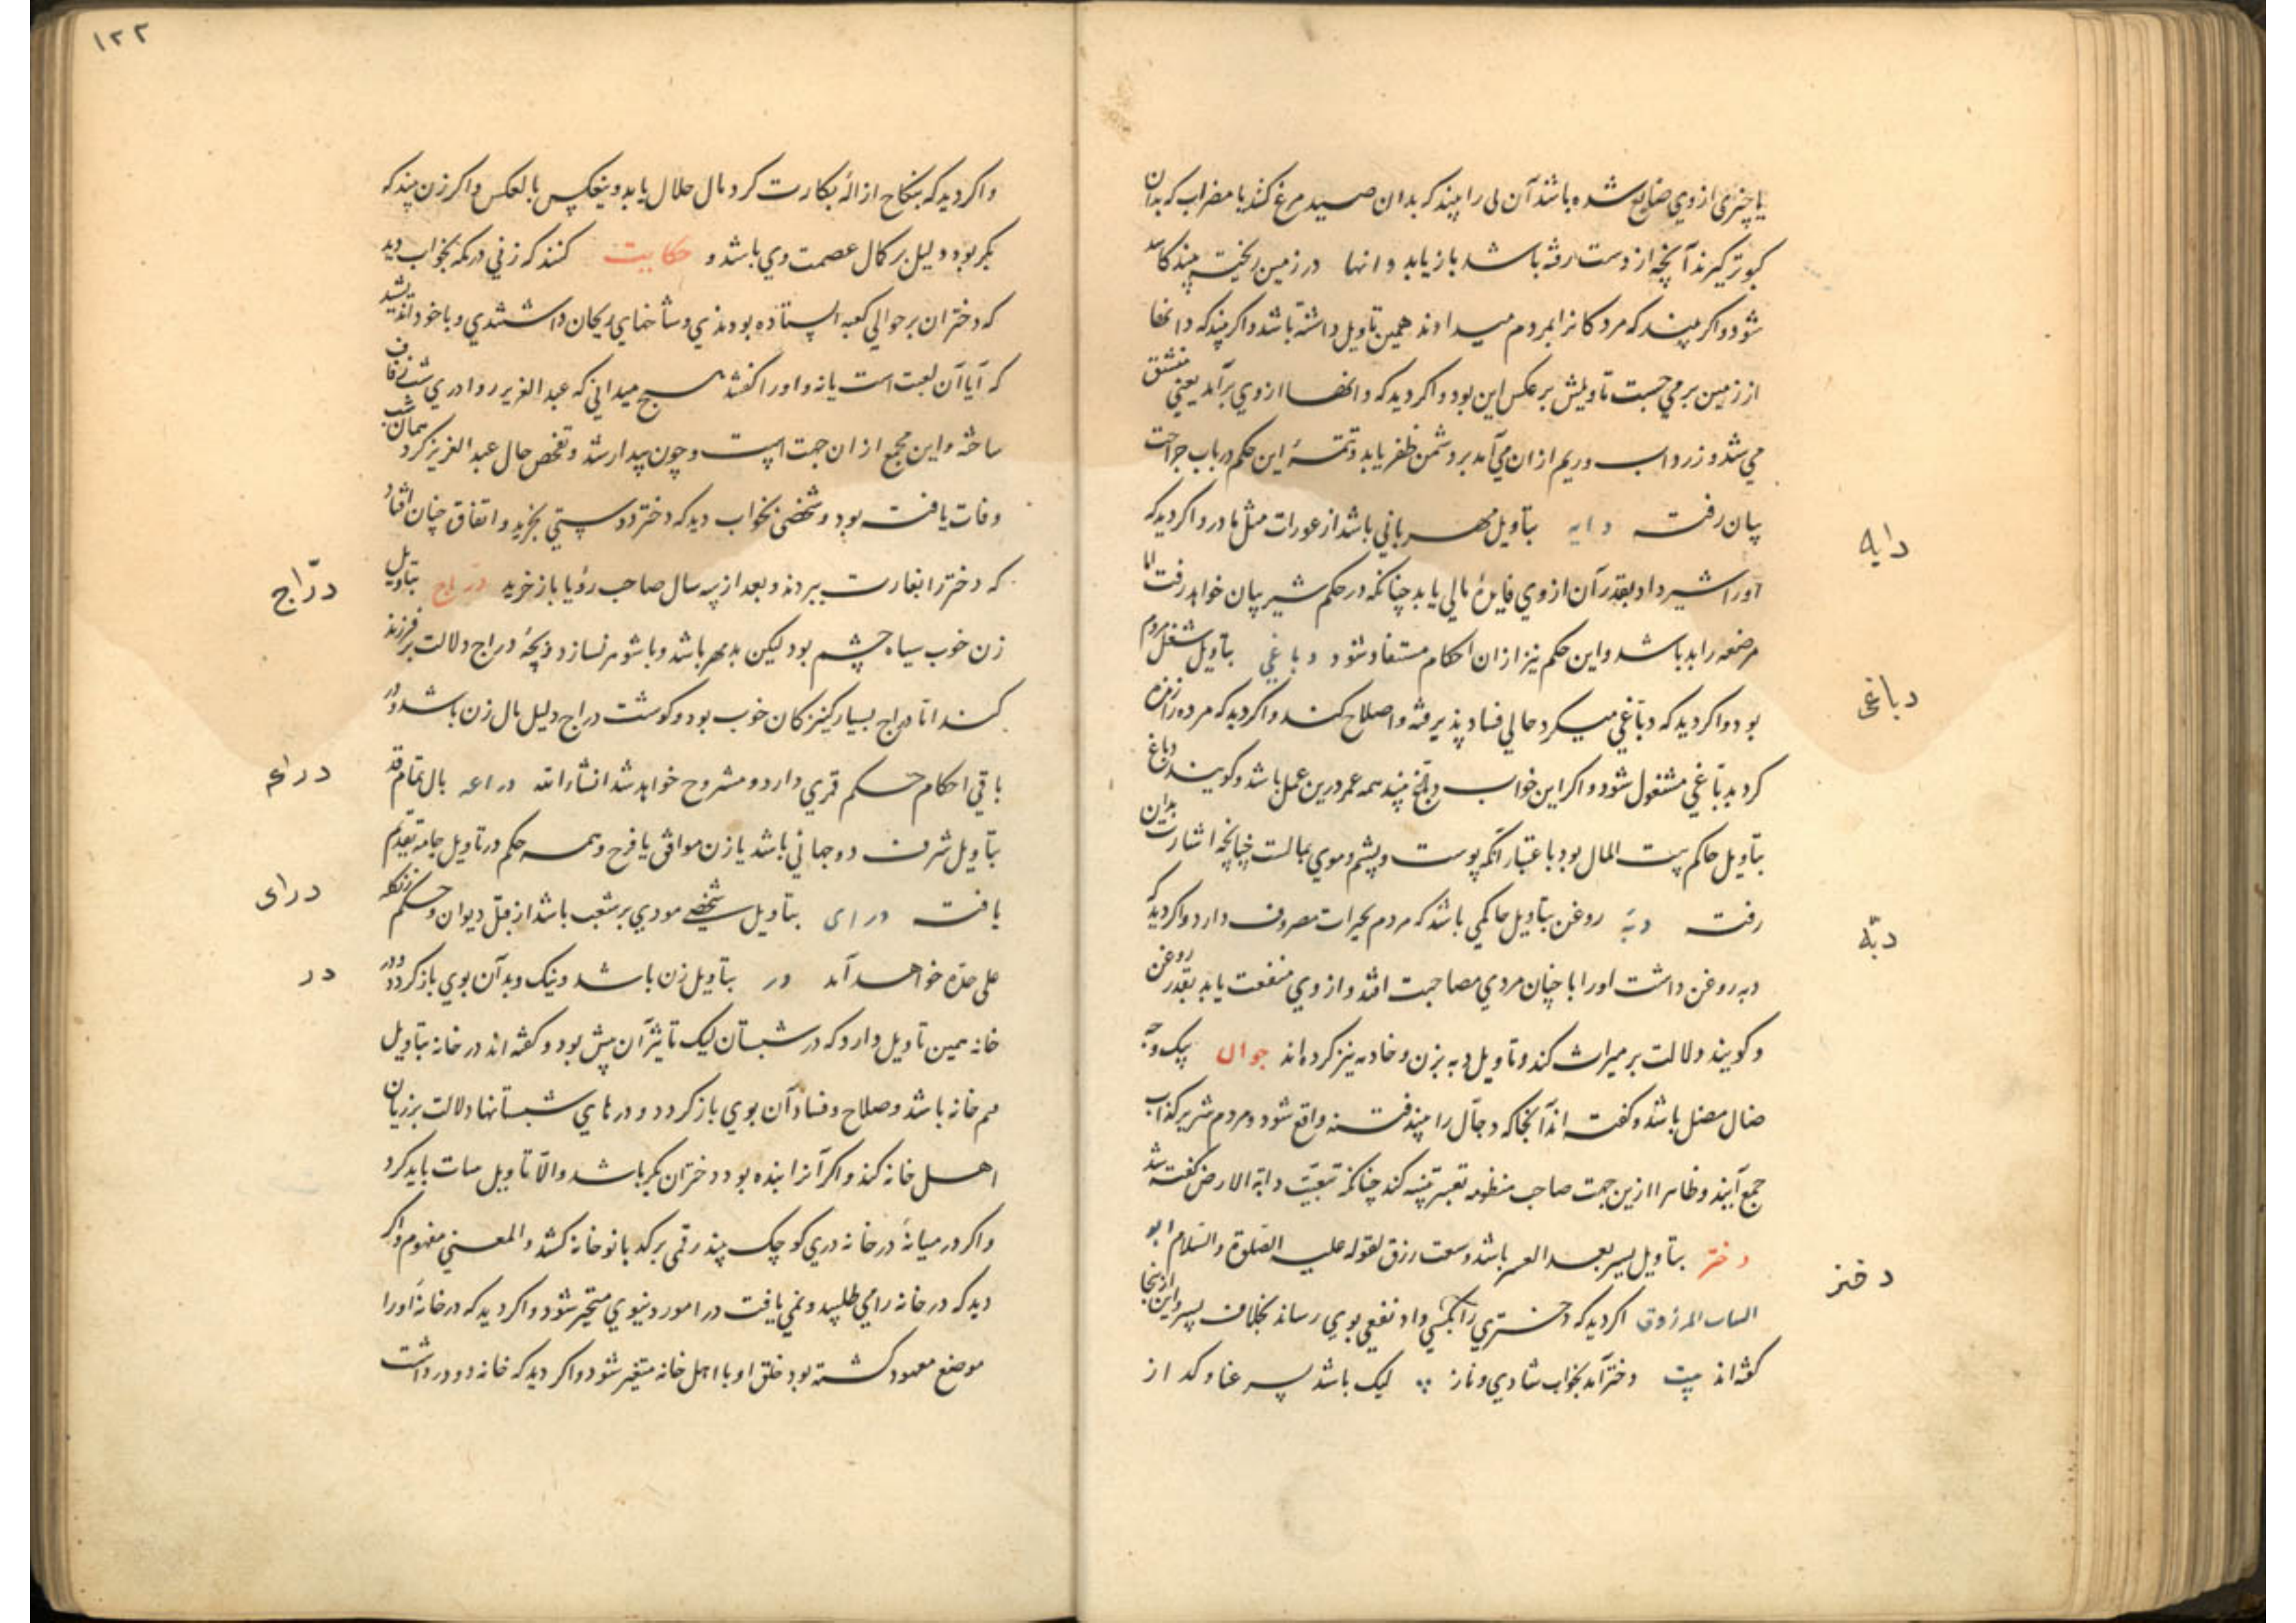 یا چیزی از وی ضایع شده باشد آن لی را بیند که بدان صید مرغ کنند یا مضراب که بدان
کبوتر گیرند آنچه از دست رفته باشد باز یابد و انها در زمین ریخته بیند کاسد
شود و اگر بیند که مردکانرا بمردم میدادند همین تاویل داشته باشد و اگر بیند که دانها
از زمین بر می جست تاویلش بر عکس این بود و اگر دید که دانها از وی برآمد یعنی منشق
می شد و زرداب و ریم از ان می آمد بر دشمن ظفر یابد و تتمهٔ این حکم در باب جراحت
بیان رفت دایه بتاویل مهربانی باشد از عورات مثل مادر و اگر دید که
دایه
اورا شیر داد بقدر آن از وی فایدهٔ مالی یابد چنانکه در حکم شیر بیان خواهد رفت اما
مرضعه را بد باشد و این حکم نیز از ان احکام مستفاد شود دباغی بتاویل شغل مردم
دباغی
بود و اگر دید که دباغی میکرد حالی فساد پذیرفته را اصلاح کند و اگر دید که مرده را زنده
کرد بدباغی مشغول شود و اگر این خواب دباغ بیند همه عمر درین عمل باشد و گویند دباغ
بتاویل حاکم بیت المال بود باعتبار آنکه پوست و پشم و موی مالست چنانچه اشارت بدان
رفت دبّه روغن بتاویل حاکمی باشد که مردم بخیرات مصروف دارد و اگر دید که
دبّه
دبه روغن داشت اورا با چنان مردی مصاحبت افتد و از وی منفعت یابد بقدر روغن
و گویند دلالت بر میراث کند و تاویل دبه بزن و خادمه نیز کرده اند جوال پیک وجه
ضال مضل باشد و گفته اند آنجا که دجّال را بیند فتنه واقع شود و مردم شریر کذاب
جمع آیند و ظاهرا ازین جهت صاحب منظومه تعبیر بفتنه کند چنانکه تبعیّت دابة الارض گفته شد
دختر بتاویل یسر بعد العسر باشد و سعت رزق لقوله علیه الصلوة والسلام ابو
دختر
البنات المرزوق اگر دید که دختری را بکسی داد نفعی بوی رساند بخلاف پسر و ازین اینجا
گفته اند بیت دختر آمد بخواب شادی و ناز لیک باشد پسر عنا و کد از
۱۲۲
و اگر دید که بنکاح ازالهٔ بکارت کرد مال حلال یابد و ینعکس بالعکس و اگر زن بیند که
بکر بود دلیل بر کمال عصمت وی باشد و حکایت کنند که زنی در مکه بخواب دید
که دختران بر حوالی کعبه ایستاده بودندی و شاخهای ریحان داشتندی و با خود اندیشید
که آیا آن لعبت است یا نه و اورا گفتند هیچ میدانی که عبد العزیز روادری شب زفاف
ساخته و این مجمع از ان جهت است و چون بیدار شد و تفحص حال عبد العزیز کرد همان شب
وفات یافته بود و شخصی بخواب دید که دختر دوستی بخرید و اتفاق چنان افتاد
که دختر را بغارت ببردند و بعد از سه سال صاحب رؤیا باز خرید درّاج بتاویل
درّاج
زن خوب سیاه چشم بود لیکن بد مهر باشد و با شوهر نسازد و بچهٔ دراج دلالت بر فرزند
کند اما دراج بسیار کنیزکان خوب بود و گوشت دراج دلیل مال زن باشد و در
باقی احکام حکم قمری دارد و مشروح خواهد شد انشاء الله دراعه بال تمام قد
دراعه
بتاویل شرف دو جهانی باشد یا زن موافق یا فرح و همه حکم در تاویل جامه تقدیم
یافت درای بتاویل شخصی موذی بر شعب باشد از قبل دیوان و حکم زنگله
درای
علی حده خواهد آمد در بتاویل زن باشد و نیک و بد آن بوی باز گردد و در
در
خانه همین تاویل دارد که در شبستان لیک تاثیر آن بیش بود و گفته اند در خانه بتاویل
مهم خانه باشد و صلاح و فساد آن بوی باز گردد و درهای شبستانها دلالت بر زیان
اهل خانه کند و اگر آنرا بنده بود دختران بکر باشد والّا تاویل بنات باید کرد
و اگر در میانهٔ در خانه دری کوچک بیند رقمی بر کد بانو خانه کشد و المعنی مفهوم و اگر
دید که در خانه را می طلبید و نمی یافت در امور دنیوی متحیر شود و اگر دید که در خانهٔ اورا
موضع معهود گشته بود خلق او با اهل خانه متغیر شود و اگر دید که خانه دو در داشت